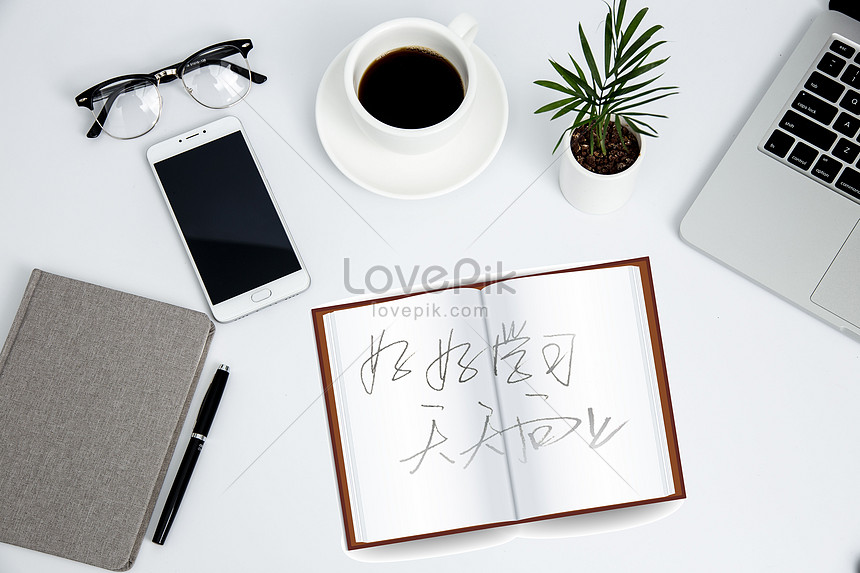 LovePik
lovepik.com
好好学习
天天向上
esc
caps lock
A
shift
Z
fn
control
option
command